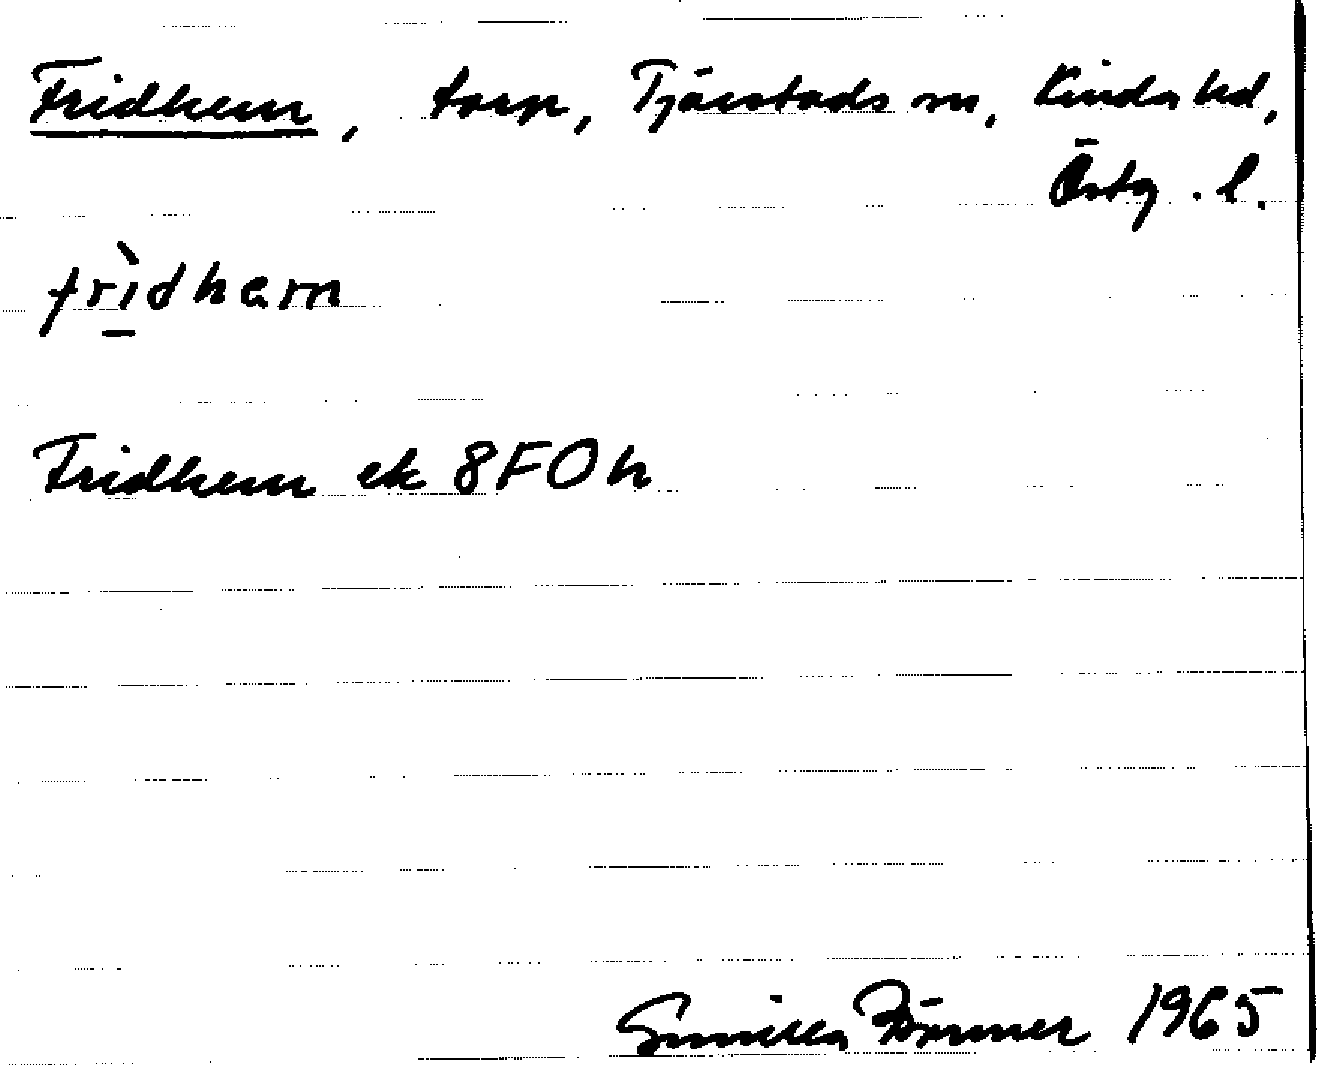 Fridhem, torp, Tjärstads sn, Kinda hd,
Östg. l.
frìdhem
Fridhem ek 8F0h
Gunilla 1965